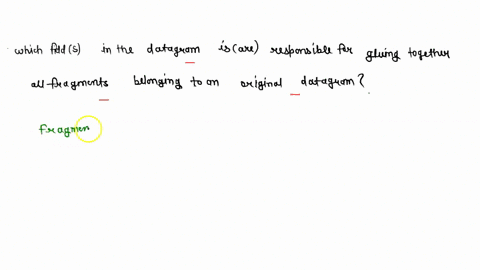 which fild(s) in the datagram is (are) responsible for gluing together
all fragments belonging to an original datagram?
Fragmen